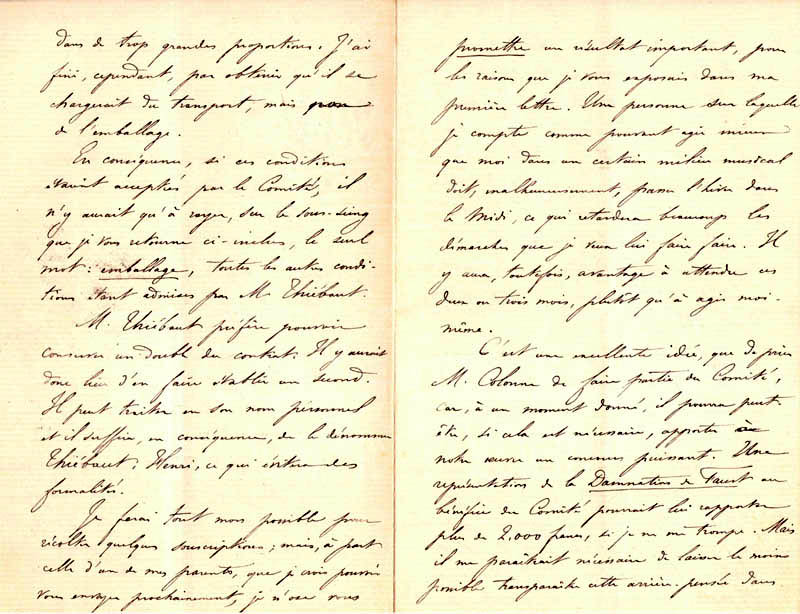 dans de trop grandes proportions. J'ai
fini, cependant, par obtenir qu'il se
chargerait du transport, mais
de l'emballage.
En conséquence, si ces conditions
étaient acceptées par le Comité, il
n'y aurait qu'à rayer, sur le sous-seing
que je vous retourne ci-inclus, le seul
mot : emballage, toutes les autres condi-
tions étant admises par M. Thiébaut.
M. Thiébaut préfère pouvoir
conserver un double du contrat. Il y aurait
donc lieu d'en faire établir un second.
Il peut traiter en son nom personnel
et il suffira, en conséquence, de le dénommer
Thiébaut, Henri, ce qui évitera des
formalités.
Je ferai tout mon possible pour
récolter quelques souscriptions ; mais, à part
celle d'un de mes parents, que je crois pouvoir
vous envoyer prochainement, je n'ose vous
promettre un résultat important, pour
les raisons que je vous exposais dans ma
première lettre. Une personne sur laquelle
je compte comme pouvant agir mieux
que moi dans un certain milieu musical
doit, malheureusement, passer l'hiver dans
le Midi, ce qui retardera beaucoup les
démarches que je veux lui faire faire. Il
y aura, toutefois, avantage à attendre ces
deux ou trois mois, plutôt qu'à agir moi-
même.
C'est une excellente idée, que de prier
M. Colonne de faire partie du Comité,
car, à un moment donné, il pourra peut-
être, si cela est nécessaire, apporter à
notre œuvre un concours puissant. Une
représentation de la Damnation de Faust au
bénéfice du Comité pourrait lui rapporter
plus de 2,000 francs, si je ne me trompe. Mais
il me paraîtrait nécessaire de laisser le moins
possible transparaître cette arrière-pensée dans